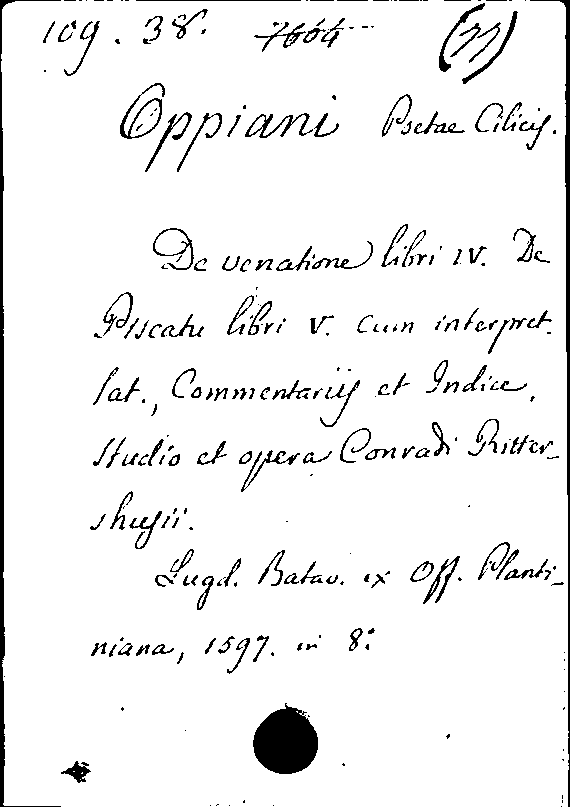 109. 38. 7664 (77)
Oppiani Poetae Cilicis.
De venatione libri IV. De
Piscatu libri V. cum interpret.
lat., Commentariis et Indice,
studio et opera Conradi Ritter-
shusii.
Lugd. Batav. ex Off. Planti-
niana, 1597. in 8: